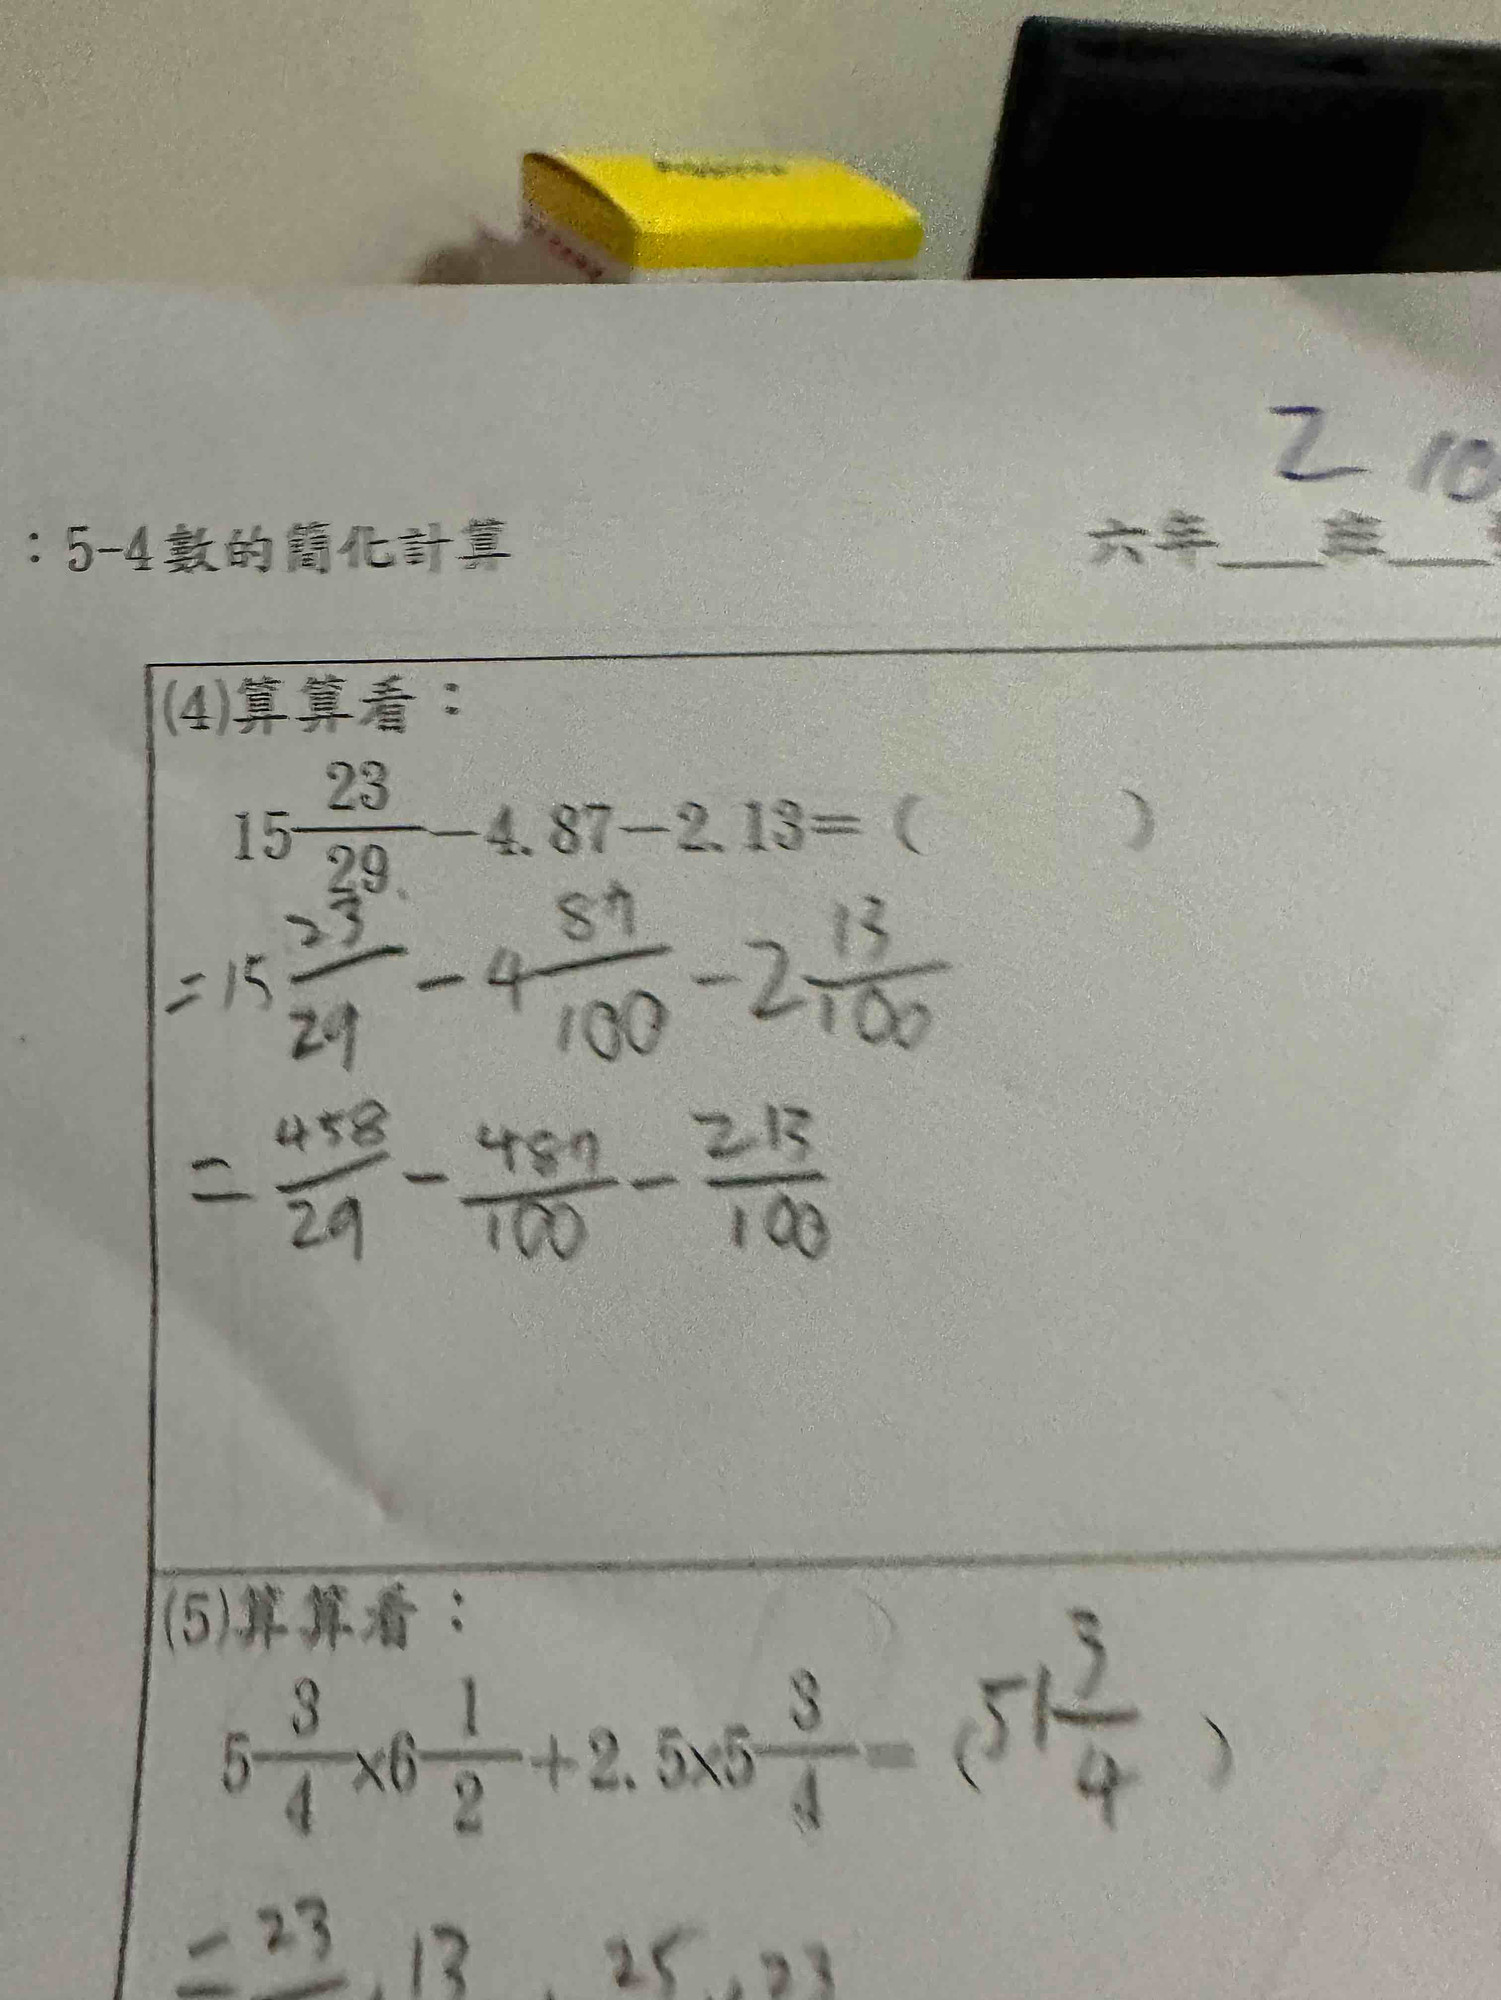 2 10
：5-4數的簡化計算 六年__班__
(4)算算看：
15 23/29 −4.87−2.13=( )
=15 23/29 - 4 87/100 - 2 13/100
= 458/29 - 487/100 - 213/100
(5)算算看：
5 3/4 ×6 1/2 +2.5×5 3/4 =(51 3/4)
= 23 13 25 23